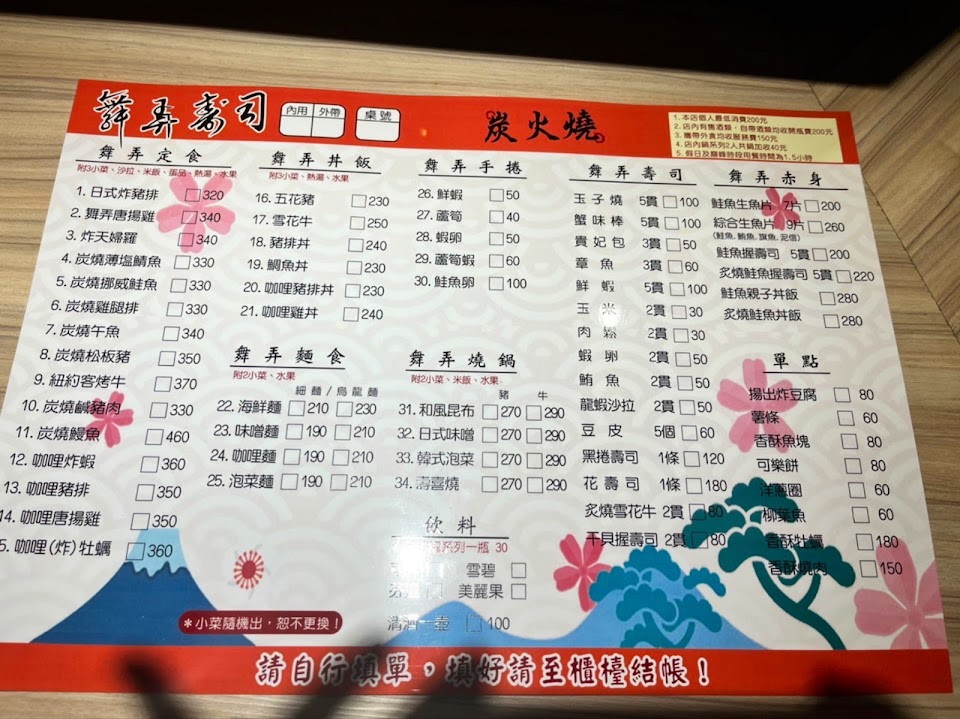 舞弄壽司
內用 外帶
桌號
炭火燒
1. 本店個人最低消費200元
2. 店內有售酒類，自帶酒類均收開瓶費200元
3. 攜帶外食均收服務費150元
4. 店內鍋系列2人共鍋加收40元
5. 假日及巔峰時段用餐時間為1.5小時
舞弄定食
附3小菜、沙拉、米飯、蛋品、熱湯、水果
1. 日式炸豬排 □320
2. 舞弄唐揚雞 □340
3. 炸天婦羅 □340
4. 炭燒薄塩鯖魚 □330
5. 炭燒挪威鮭魚 □330
6. 炭燒雞腿排 □330
7. 炭燒午魚 □340
8. 炭燒松板豬 □350
9. 紐約客烤牛 □370
10. 炭燒鹹豬肉 □330
11. 炭燒鰻魚 □460
12. 咖哩炸蝦 □360
13. 咖哩豬排 □350
14. 咖哩唐揚雞 □350
5. 咖哩(炸)牡蠣 □360
舞弄丼飯
附3小菜、熱湯、水果
16. 五花豬 □230
17. 雪花牛 □250
18. 豬排丼 □240
19. 鯛魚丼 □230
20. 咖哩豬排丼 □230
21. 咖哩雞丼 □240
舞弄麵食
附2小菜、水果
細麵/烏龍麵
22. 海鮮麵 □210 □230
23. 味噌麵 □190 □210
24. 咖哩麵 □190 □210
25. 泡菜麵 □190 □210
舞弄手捲
26. 鮮蝦 □50
27. 蘆筍 □40
28. 蝦卵 □50
29. 蘆筍蝦 □60
30. 鮭魚卵 □100
舞弄燒鍋
附2小菜、米飯、水果
豬 牛
31. 和風昆布 □270 □290
32. 日式味噌 □270 □290
33. 韓式泡菜 □270 □290
34. 壽喜燒 □270 □290
飲料
系列一瓶 30
雪碧 □
美麗果 □
清酒一壺 □100
舞弄壽司
玉子燒 5貫 □100
蟹味棒 5貫 □100
貴妃包 3貫 □50
章魚 3貫 □60
鮮蝦 5貫 □100
玉米 2貫 □30
肉鬆 2貫 □30
蝦卵 2貫 □50
鮪魚 2貫 □50
龍蝦沙拉 2貫 □50
豆皮 5個 □60
黑捲壽司 1條 □120
花壽司 1條 □180
炙燒雪花牛 2貫 □80
干貝握壽司 2貫 □80
舞弄赤身
鮭魚生魚片 7片 □200
綜合生魚片 9片 □260
(鮭魚, 鮪魚, 旗魚, 花信)
鮭魚握壽司 5貫 □200
炙燒鮭魚握壽司 5貫 □220
鮭魚親子丼飯 □280
炙燒鮭魚丼飯 □280
單點
揚出炸豆腐 □ 80
薯條 □ 60
香酥魚塊 □ 80
可樂餅 □ 80
洋蔥圈 □ 60
柳葉魚 □ 60
香酥牡蠣 □180
香酥燒肉 □150
＊小菜隨機出，恕不更換！
請自行填單，填好請至櫃檯結帳！